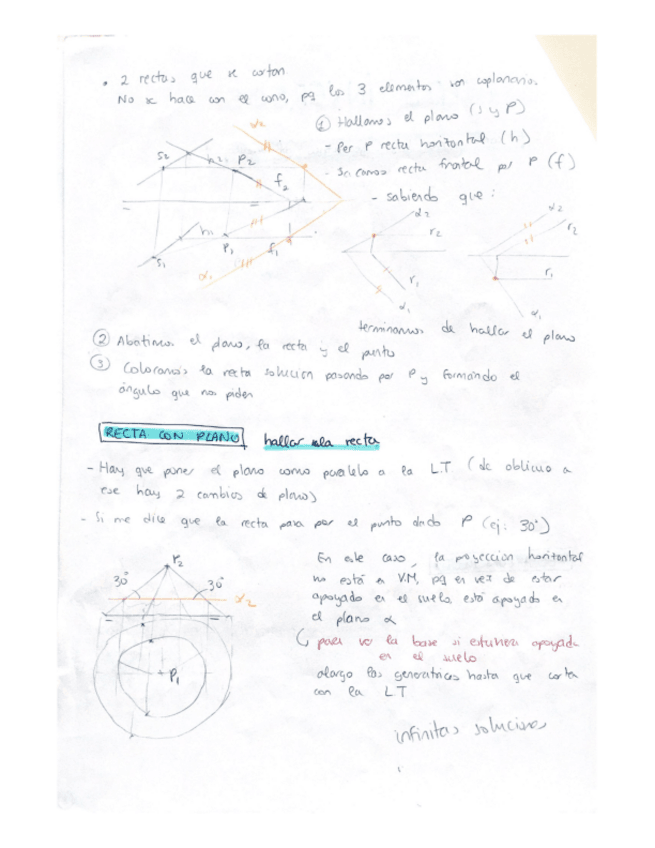 • 2 rectas que se cortan
No se hace con el cono, pq los 3 elementos son coplanarios.
① Hallamos el plano (s y P)
- Por P recta horizontal (h)
- Se conoce recta frontal por P (f)
- sabiendo que:
α2
S2
h2
P2
f2
h1
S1
P1
f1
α1
α2
r2
r1
α1
α2
r2
r1
α1
terminamos de hallar el plano
② Abatimos el plano, la recta y el punto
③ Colocamos la recta solución pasando por P y formando el
ángulo que nos piden
RECTA CON PLANO hallar la recta
- Hay que poner el plano como paralelo a la LT (de oblicuo a
ese hay 2 cambios de plano)
- Si me dice que la recta pasa por el punto dado P (ej: 30°)
P2
30°
30°
α2
P1
En este caso, la proyección horizontal
no está en V.M, pq en vez de estar
apoyado en el suelo está apoyado en
el plano α
para ver la base si estuviera apoyada
en el suelo
alargo las generatrices hasta que corta
con la LT
infinitas soluciones